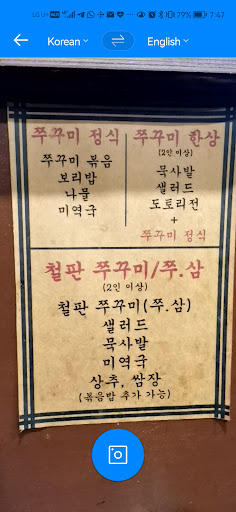 LG U+ 79% 7:47
Korean English
쭈꾸미 정식
쭈꾸미 볶음
보리밥
나물
미역국
쭈꾸미 한상
(2인 이상)
묵사발
샐러드
도토리전
+
쭈꾸미 정식
철판 쭈꾸미/쭈.삼
(2인 이상)
철판 쭈꾸미(쭈.삼)
샐러드
묵사발
미역국
상추, 쌈장
(볶음밥 추가 가능)